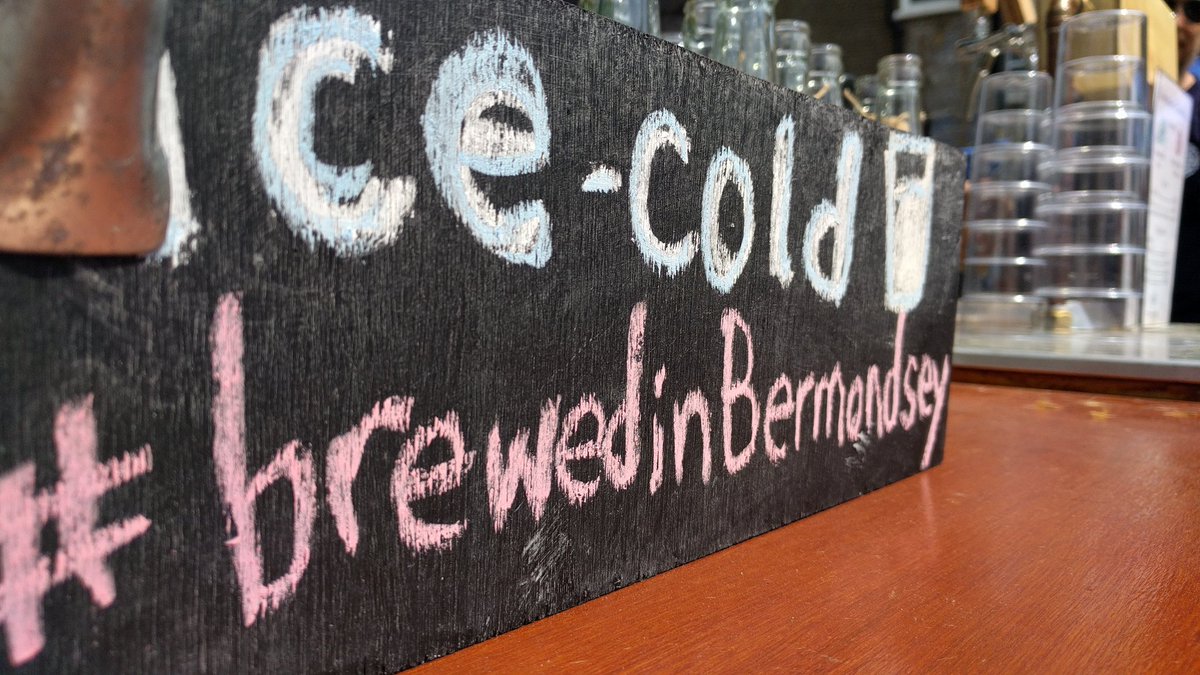 ice-cold
#brewedinBermondsey